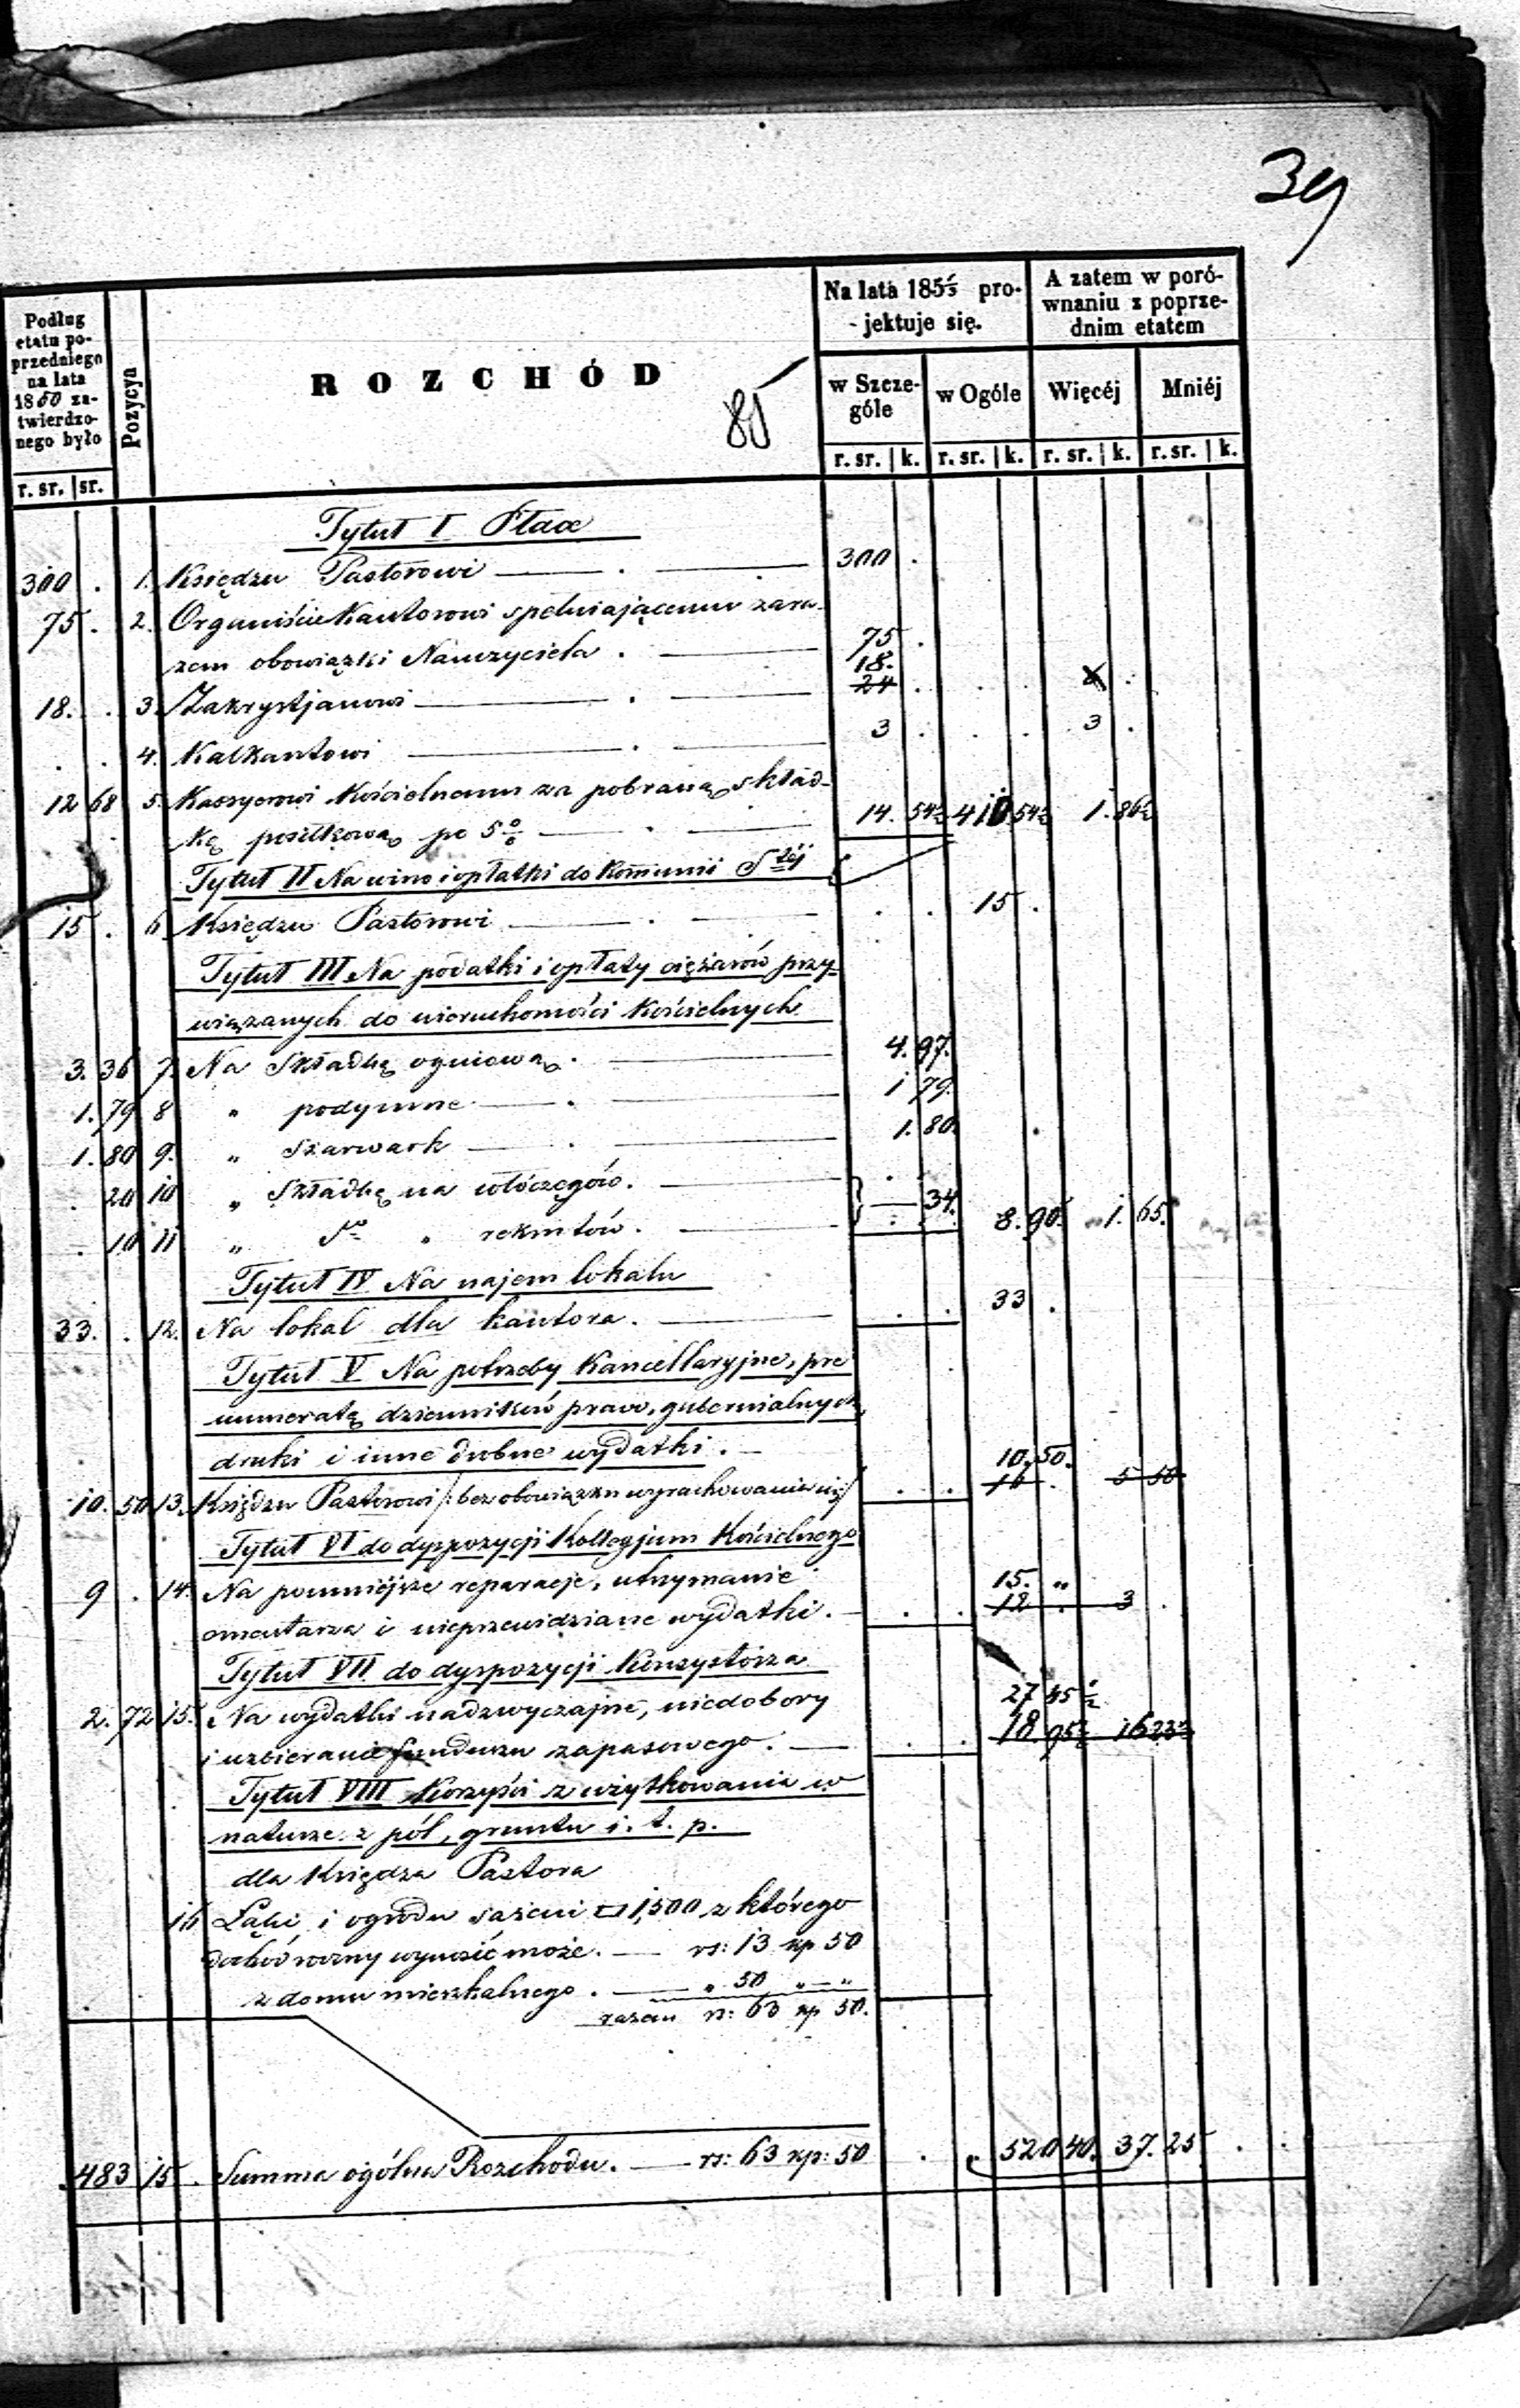 39
Podług etatu poprzedniego na lata 1850 zatwierdzonego było
r. sr. | sr.
Pozycya
ROZCHÓD
85
Na lata 185 projektuje się.
w Szczególe
r. sr. | k.
w Ogóle
r. sr. | k.
A zatem w porównaniu z poprzednim etatem
Więcéj
r. sr. | k.
Mniéj
r. sr. | k.
Tytuł I Płace
300 . 1. Księdzu Pastorowi — . — 300 .
75 . 2. Organiście Kantorowi spełniającemu zara-
zem obowiązki Nauczyciela . — 75 .
18. . 3. Zakrystjanowi — . — 18. 24 . . . .
. . 4. Kalkantowi — . — 3 . . . 3 .
12 68 5. Kassyerowi Kościelnemu za pobraną skład-
kę posiłkową po 5% — . — 14. 54½ 410 54½ 1. 86½
Tytuł II Na wino i opłatki do Kommunii Stéj
15 . 6 Księdzu Pastorowi — . — . . 15 .
Tytuł III Na podatki i opłaty ciężarów przy-
wiązanych do nieruchomości Kościelnych
3. 36 7. Na Składkę ogniową . — 4. 97.
1. 79 8 " podymne — . — 1 79.
1. 80 9. " Szarwark — . — 1. 80.
. 20 10 " Składkę na włóczęgów. — .
. 10 11 " do " rekrutów. — 34. 8. 90. 1. 65.
Tytuł IV Na najem lokalu
33. . 12. Na lokal dla kantora. — . . 33 .
Tytuł V Na potrzeby Kancellaryjne, pre
numeratę dzienników praw, gubernialnych,
druki i inne drobne wydatki . —
10. 50 13. Księdzu Pastorowi /: bez obowiązku wyrachowania się :/ . . 10. 50. 16 . 5 50
Tytuł VI do dyspozycji Kollegjum Kościelnego
9 . 14. Na pomniejsze reparacje, utrzymanie
cmentarza i nieprzewidziane wydatki. — . . 15. " 12 . 3 .
Tytuł VII do dyspozycji Konsystorza
2. 72 15. Na wydatki nadzwyczajne, niedobory
i uzbieranie funduszu zapasowego. — . . 27 45½ 18. 95½ 16 23½
Tytuł VIII Korzyści z użytkowania w
naturze z pól, gruntu i. t. p.
dla Księdza Pastora
16 Łąki i ogrodu sażeni □ 1,500 z którego
dochód roczny wynosić może. — rs: 13 kp 50
z domu mieszkalnego . — " 50 " — "
razem rs: 63 kp 50.
483 15 . Summa ogólna Rozchodu. — rs: 63 kp: 50 . . 520 40. 37. 25 . .